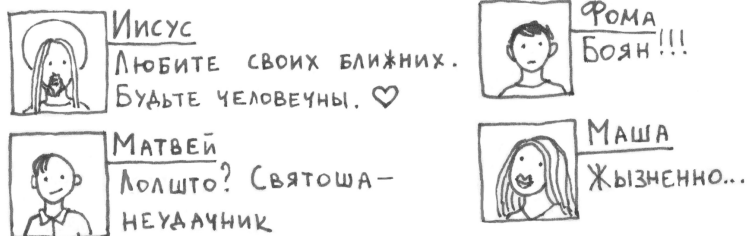 Иисус
Любите своих ближних.
Будьте человечны. ♡
Матвей
Лолшто? Святоша –
неудачник
Фома
Боян!!!
Маша
Жызненно...